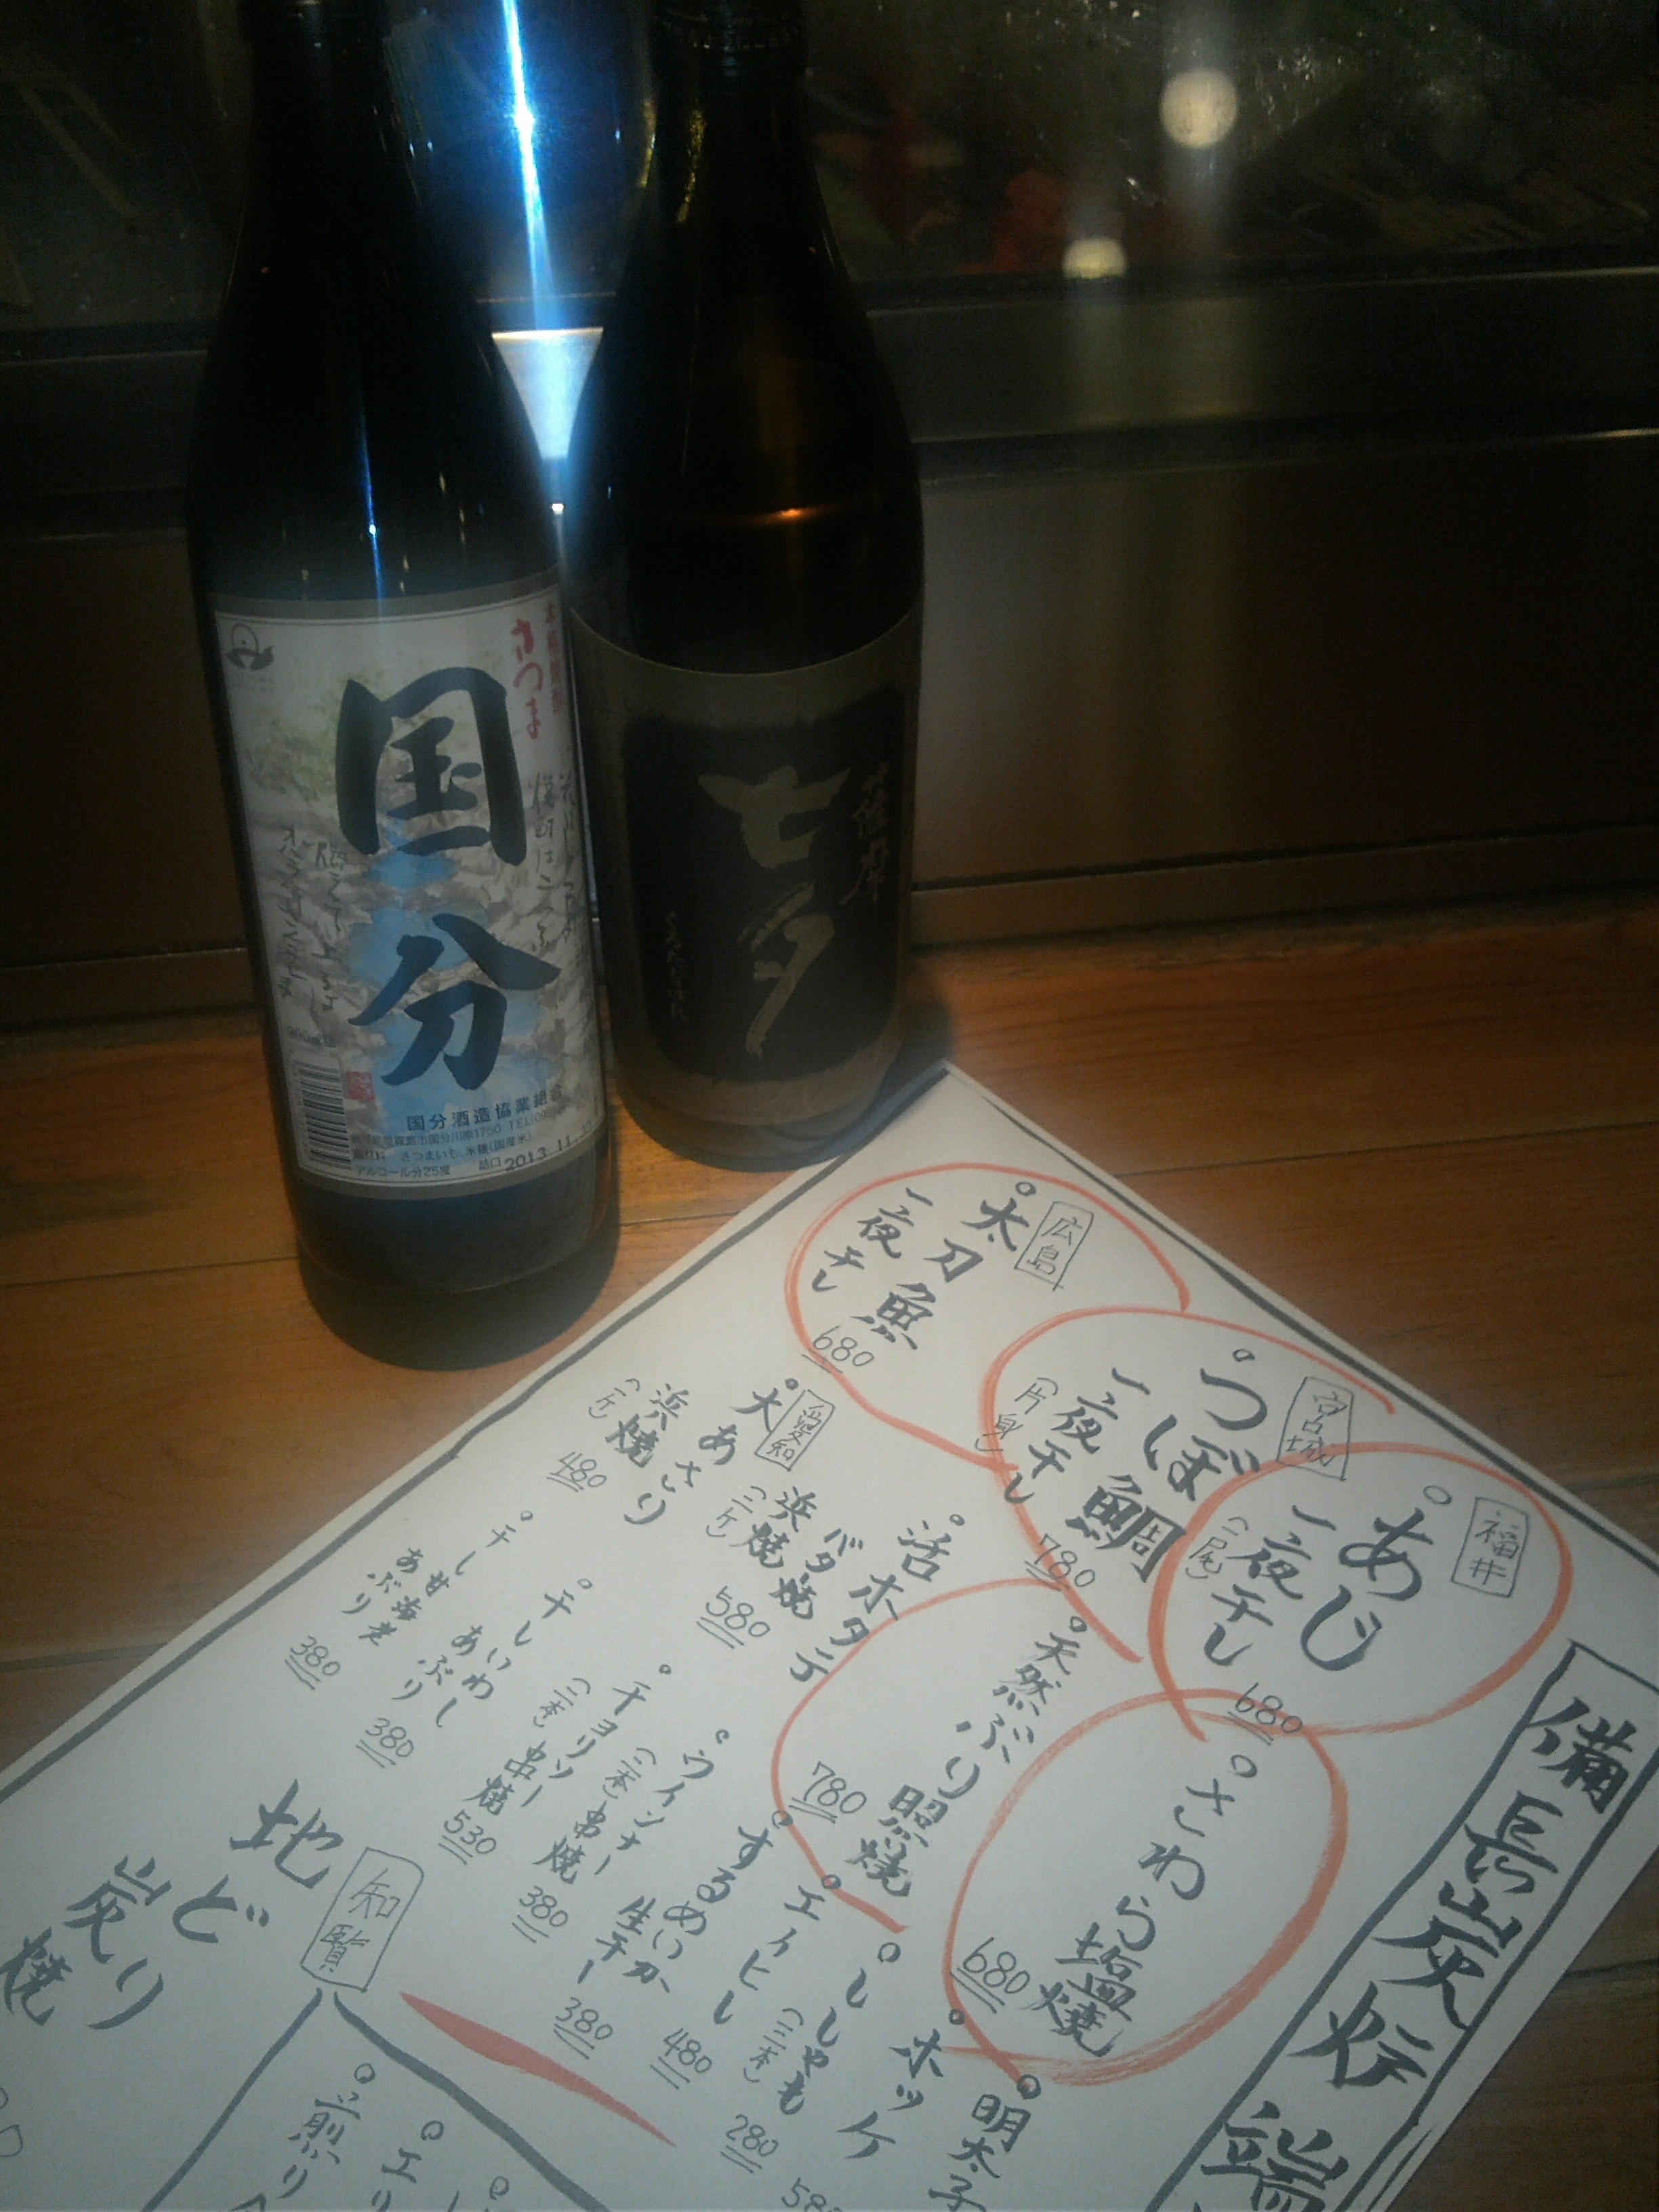 さつま
国分
国分酒造協業組合
さつまいも、米麹(国産米)
アルコール分25度
2013.11
薩摩
七夕
備長炭炉端
福井
あじ
一夜干し
(一尾)
680
宮城
つぼ鯛
一夜干し
(片身)
780
広島
太刀魚
一夜干し
680
さわら塩焼
680
天然ぶり照焼
780
活ホタテ
バタ焼
浜焼
(二ケ)
580
愛知
大あさり
浜焼
(一ケ)
480
明太子
ホッケ
ししゃも
(三本)
280
エイヒレ
480
するめいか
生干し
380
ウインナー
串焼
(二本)
380
チョリソー
串焼
(二本)
530
干しいわし
あぶり
380
干し甘海老
あぶり
380
知覧
地どり
炭焼